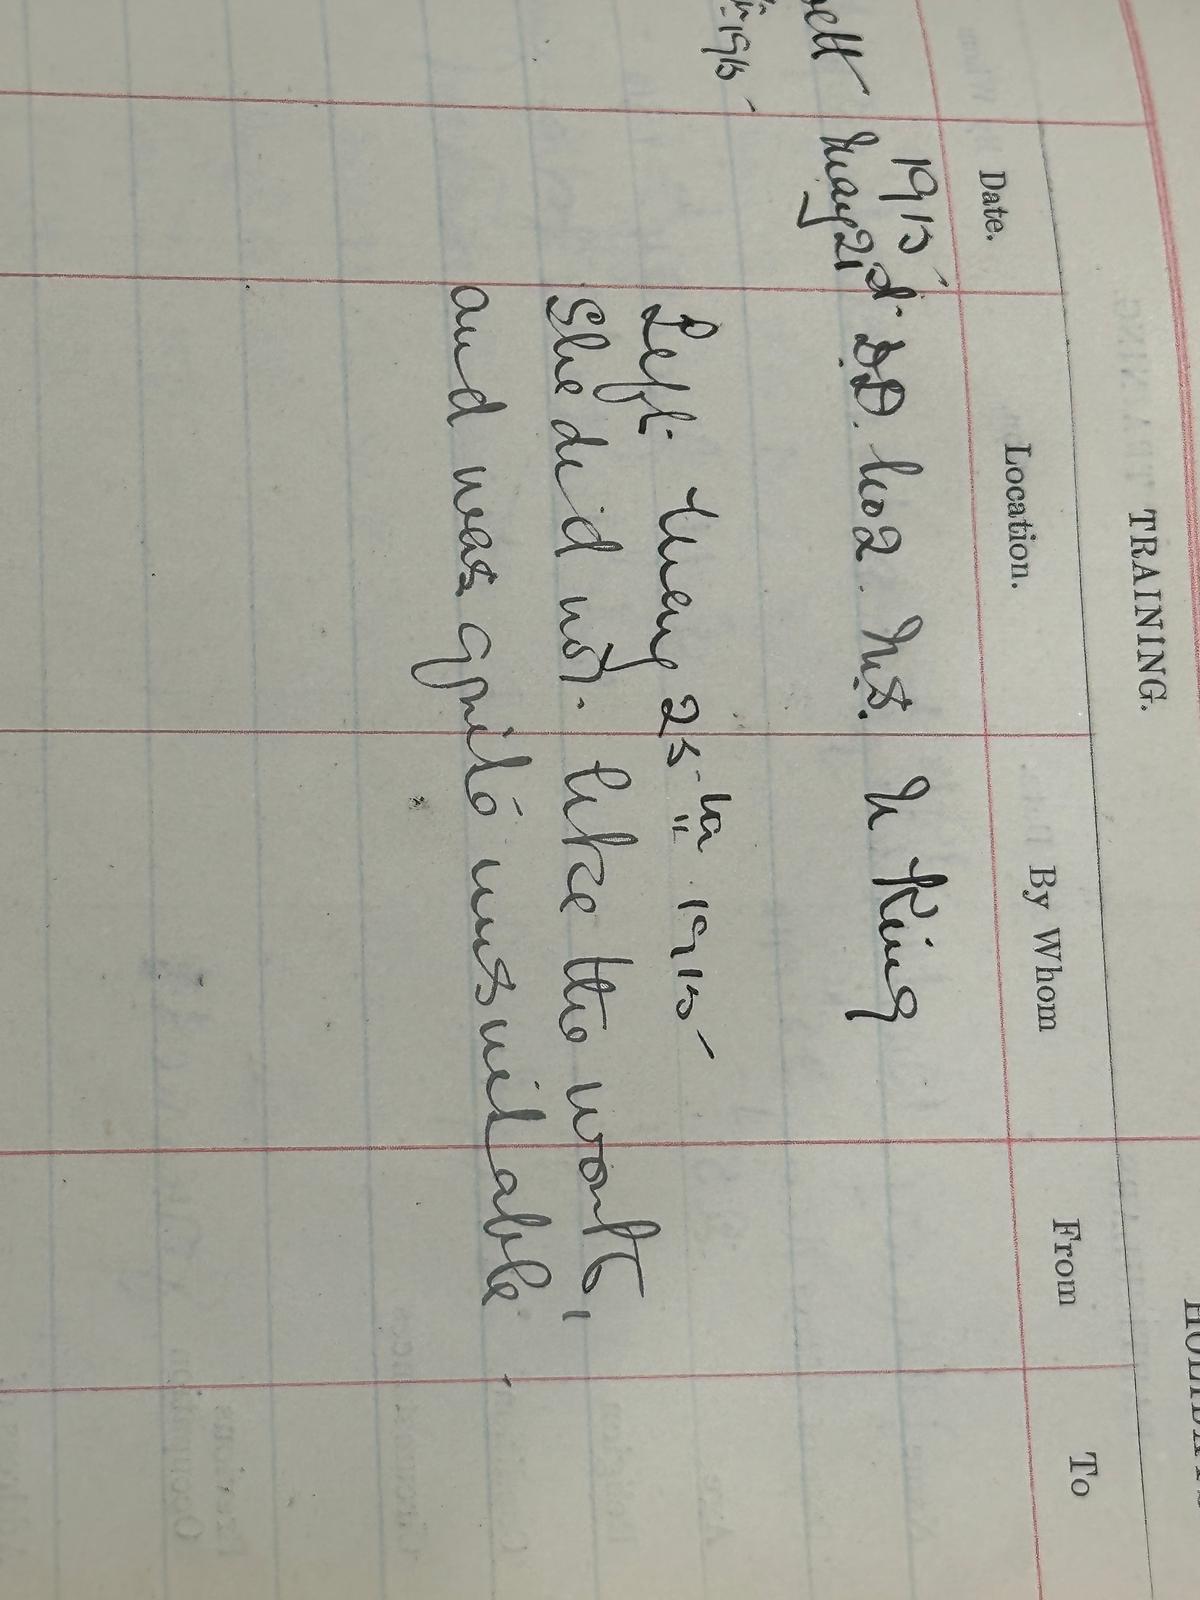 TRAINING.
Date. Location. By Whom From To
1915
May 21 DD. No 2. M.S. N King
1915
Left May 25th 1915
She did not like the work,
and was quite unsuitable